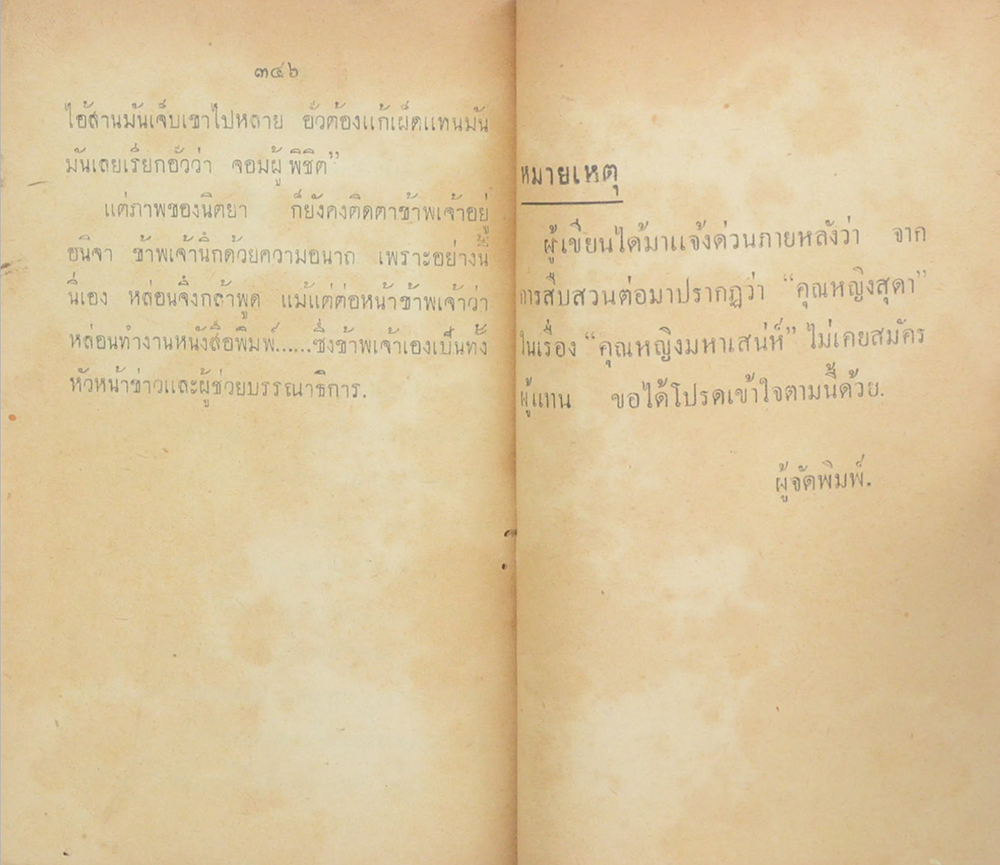 ๓๔๖
ไอ้สานมันเจ็บเขาไปหลาย อั๊วต้องแก้เผ็ดแทนมัน
มันเลยเรียกอั๊วว่า จอมผู้พิชิต”
แต่ภาพของนิตยา ก็ยังคงติดตาข้าพเจ้าอยู่
อนิจา ข้าพเจ้านึกด้วยความอนาถ เพราะอย่างนี้
นี่เอง หล่อนจึงกล้าพูด แม้แต่ต่อหน้าข้าพเจ้าว่า
หล่อนทำงานหนังสือพิมพ์......ซึ่งข้าพเจ้าเองเป็นทั้ง
หัวหน้าข่าวและผู้ช่วยบรรณาธิการ.
หมายเหตุ
ผู้เขียนได้มาแจ้งด่วนภายหลังว่า จาก
การสืบสวนต่อมาปรากฏว่า “คุณหญิงสุดา”
ในเรื่อง “คุณหญิงมหาเสน่ห์” ไม่เคยสมัคร
ผู้แทน ขอได้โปรดเข้าใจตามนี้ด้วย.
ผู้จัดพิมพ์.